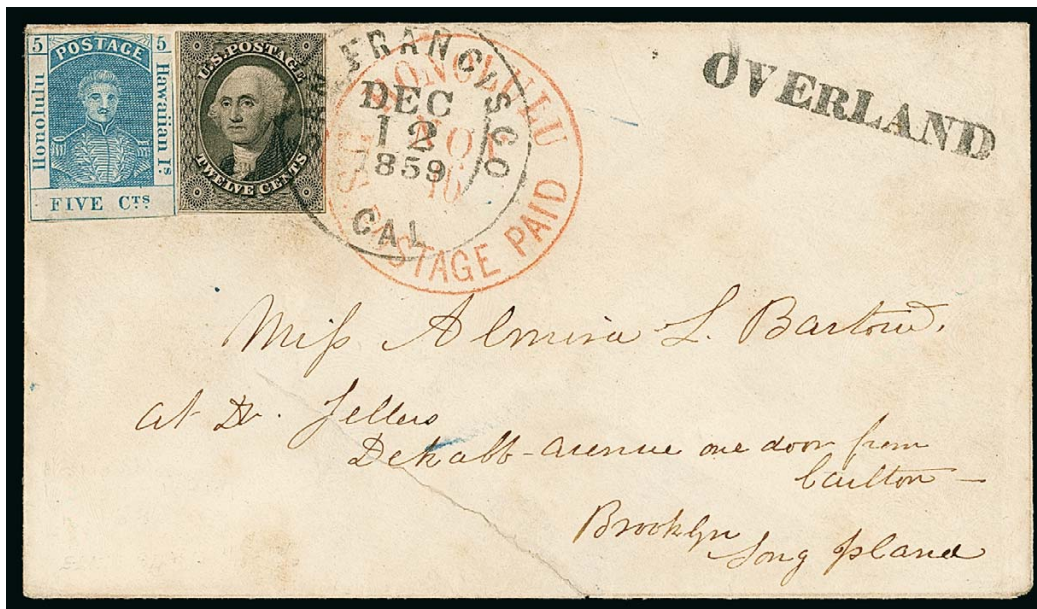 5 POSTAGE 5
Honolulu
Hawaiian Is
FIVE CTS
U.S. POSTAGE
TWELVE CENTS
SAN FRANCISCO
DEC
12
1859
CAL
HONOLULU
U.S. POSTAGE PAID
OVERLAND
Miss Almira L.
at Dr. Jellers
Dekalb-avenue one door from
Carlton —
Brooklyn
Long Island